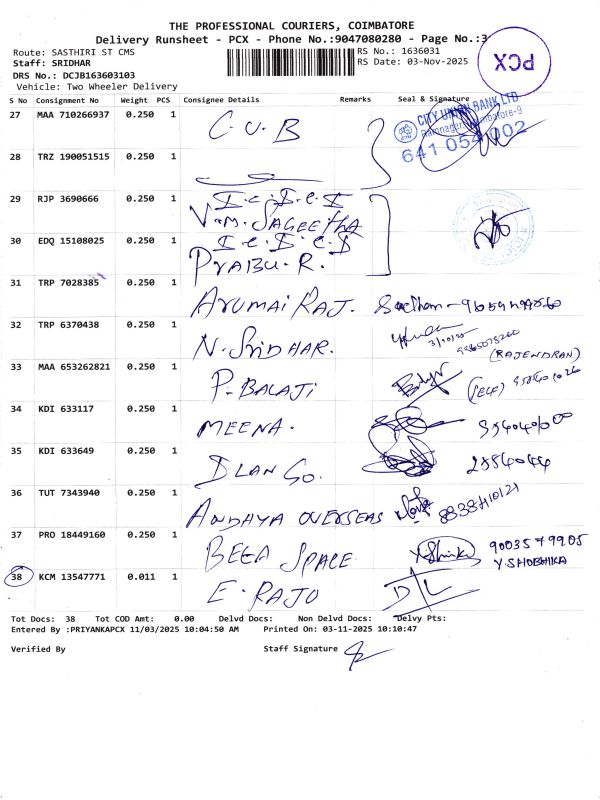 THE PROFESSIONAL COURIERS, COIMBATORE
Delivery Runsheet - PCX - Phone No.:9047080280 - Page No.:3
PCX
Route: SASTHIRI ST CMS
RS No.: 1636031
Staff: SRIDHAR
RS Date: 03-Nov-2025
DRS No.: DCJB163603103
Vehicle: Two Wheeler Delivery
S No Consignment No Weight PCS Consignee Details Remarks Seal & Signature
27 MAA 710266937 0.250 1 C.U.B
CITY UNION BANK LTD
Ramnagar, Coimbatore-9
641 054 002
28 TRZ 190051515 0.250 1
29 RJP 3690666 0.250 1 I.C.I.C.I
V.M. SAGEETHA
30 EDQ 15108025 0.250 1 I.C.I.C.I
PRABU. R.
31 TRP 7028385 0.250 1 ARUMAI RAJ.
32 TRP 6370438 0.250 1 N. SRIDHAR.
(RAJENDRAN)
33 MAA 653262821 0.250 1 P. BALAJI
34 KDI 633117 0.250 1 MEENA.
35 KDI 633649 0.250 1 ILAN GO.
36 TUT 7343940 0.250 1 ANDHYA OVERSEAS
37 PRO 18449160 0.250 1 BEEA SPACE. Y. Shobika 9003579905
Y. SHOBHIKA
38 KCM 13547771 0.011 1 E. RAJU D/L
Tot Docs: 38 Tot COD Amt: 0.00 Delvd Docs: Non Delvd Docs: Delvy Pts:
Entered By :PRIYANKAPCX 11/03/2025 10:04:50 AM Printed On: 03-11-2025 10:10:47
Verified By Staff Signature